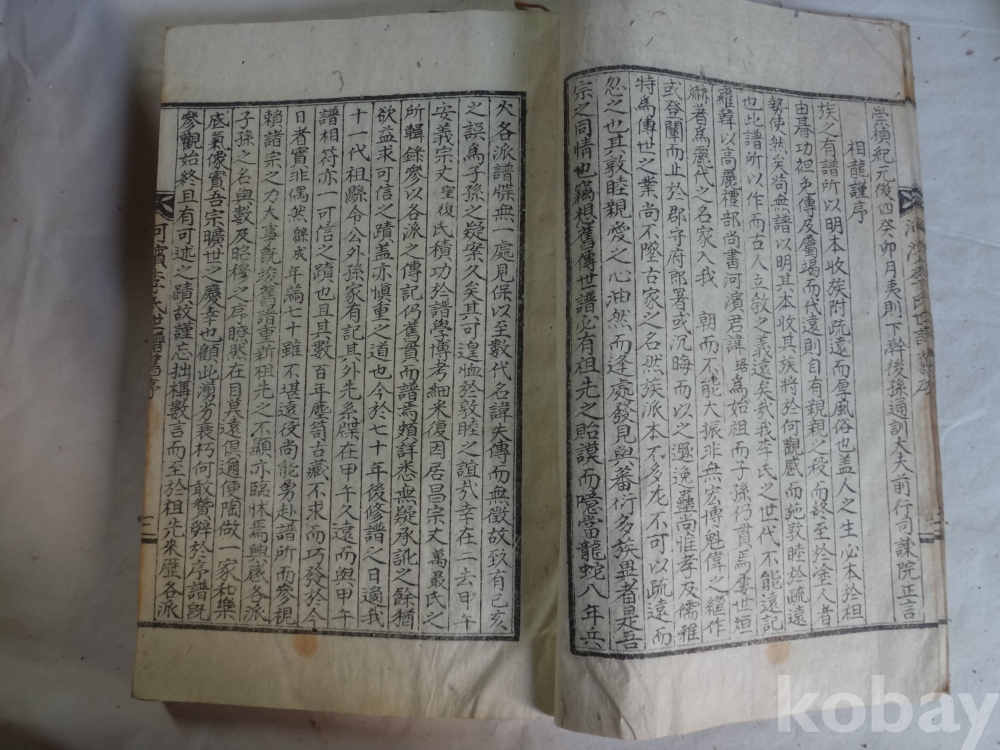 崇禎紀元後四癸卯月夷則下幹後孫通訓大夫前行司諫院正言
相龍謹序
族之有譜所以明本收族附疏遠而厚風俗也盖人之生必本於祖
由朞功袒免傳及屬竭而代遠則自有親親之殺而終至於塗人者
勢使然矣尚無譜以明其本收其族將於何觀感而施敦睦於疏遠
也此譜所以作而古人立敎之義遠矣哉我李氏之世代不能遠記
羅韓以高麗禮部尚書河濱君諱 爲始祖而子孫仍貫焉屢世垣
麻著爲麗代之名家入我 朝而不能大振非無宏博魁偉之繼作
或登閫而止於郡守府郎署或沉晦而以之遯逸蠱尚惟孝及儒雅
特爲傳世之業尚不墜古家之名然族派本不多尨不可以疏遠而
忽之也且敦睦親愛之心油然而逢處發見與蕃衍多族異者是吾
宗之同情也竊想舊傳世譜必有祖先之貽謨而噫當龍蛇八年兵
火各派譜牒無一處見保以至數代名諱失傳而無徵故致有己亥
之誤爲子孫之疑案久矣其可遑恤於敦睦之誼哉幸在二去甲午
安義宗丈聖復氏積功於譜學博考細采復因居昌宗丈萬最氏之
所輯錄參以各派之傳記仍舊貫而譜焉頗詳悉無疑承訛之餘猶
欲益求可信之蹟盖亦愼重之道也今於七十年後修譜之日適我
十一代祖縣令公外孫家有記其外先系牒在甲午久遠而與甲午
譜相符亦一可信之蹟也且其數百年塵笥古藏不求而巧發於今
日者實非偶然 年滿七十雖不堪遠役尚能勇赴譜所而參視
賴諸宗之力大事旣竣舊譜重新祖先之不顯亦臨休焉興感各派
子孫之名與數及昭穆之序瞭然在目莫遠俱邇便陶做一家和樂
底氣像實吾宗曠世之慶幸也顧此湯劣衰朽何敢贅辭於序譜旣
參觀始終且有可述之蹟故謹忘拙構數言而至於祖先來歷各派
河濱李氏世譜舊序
二
kobay